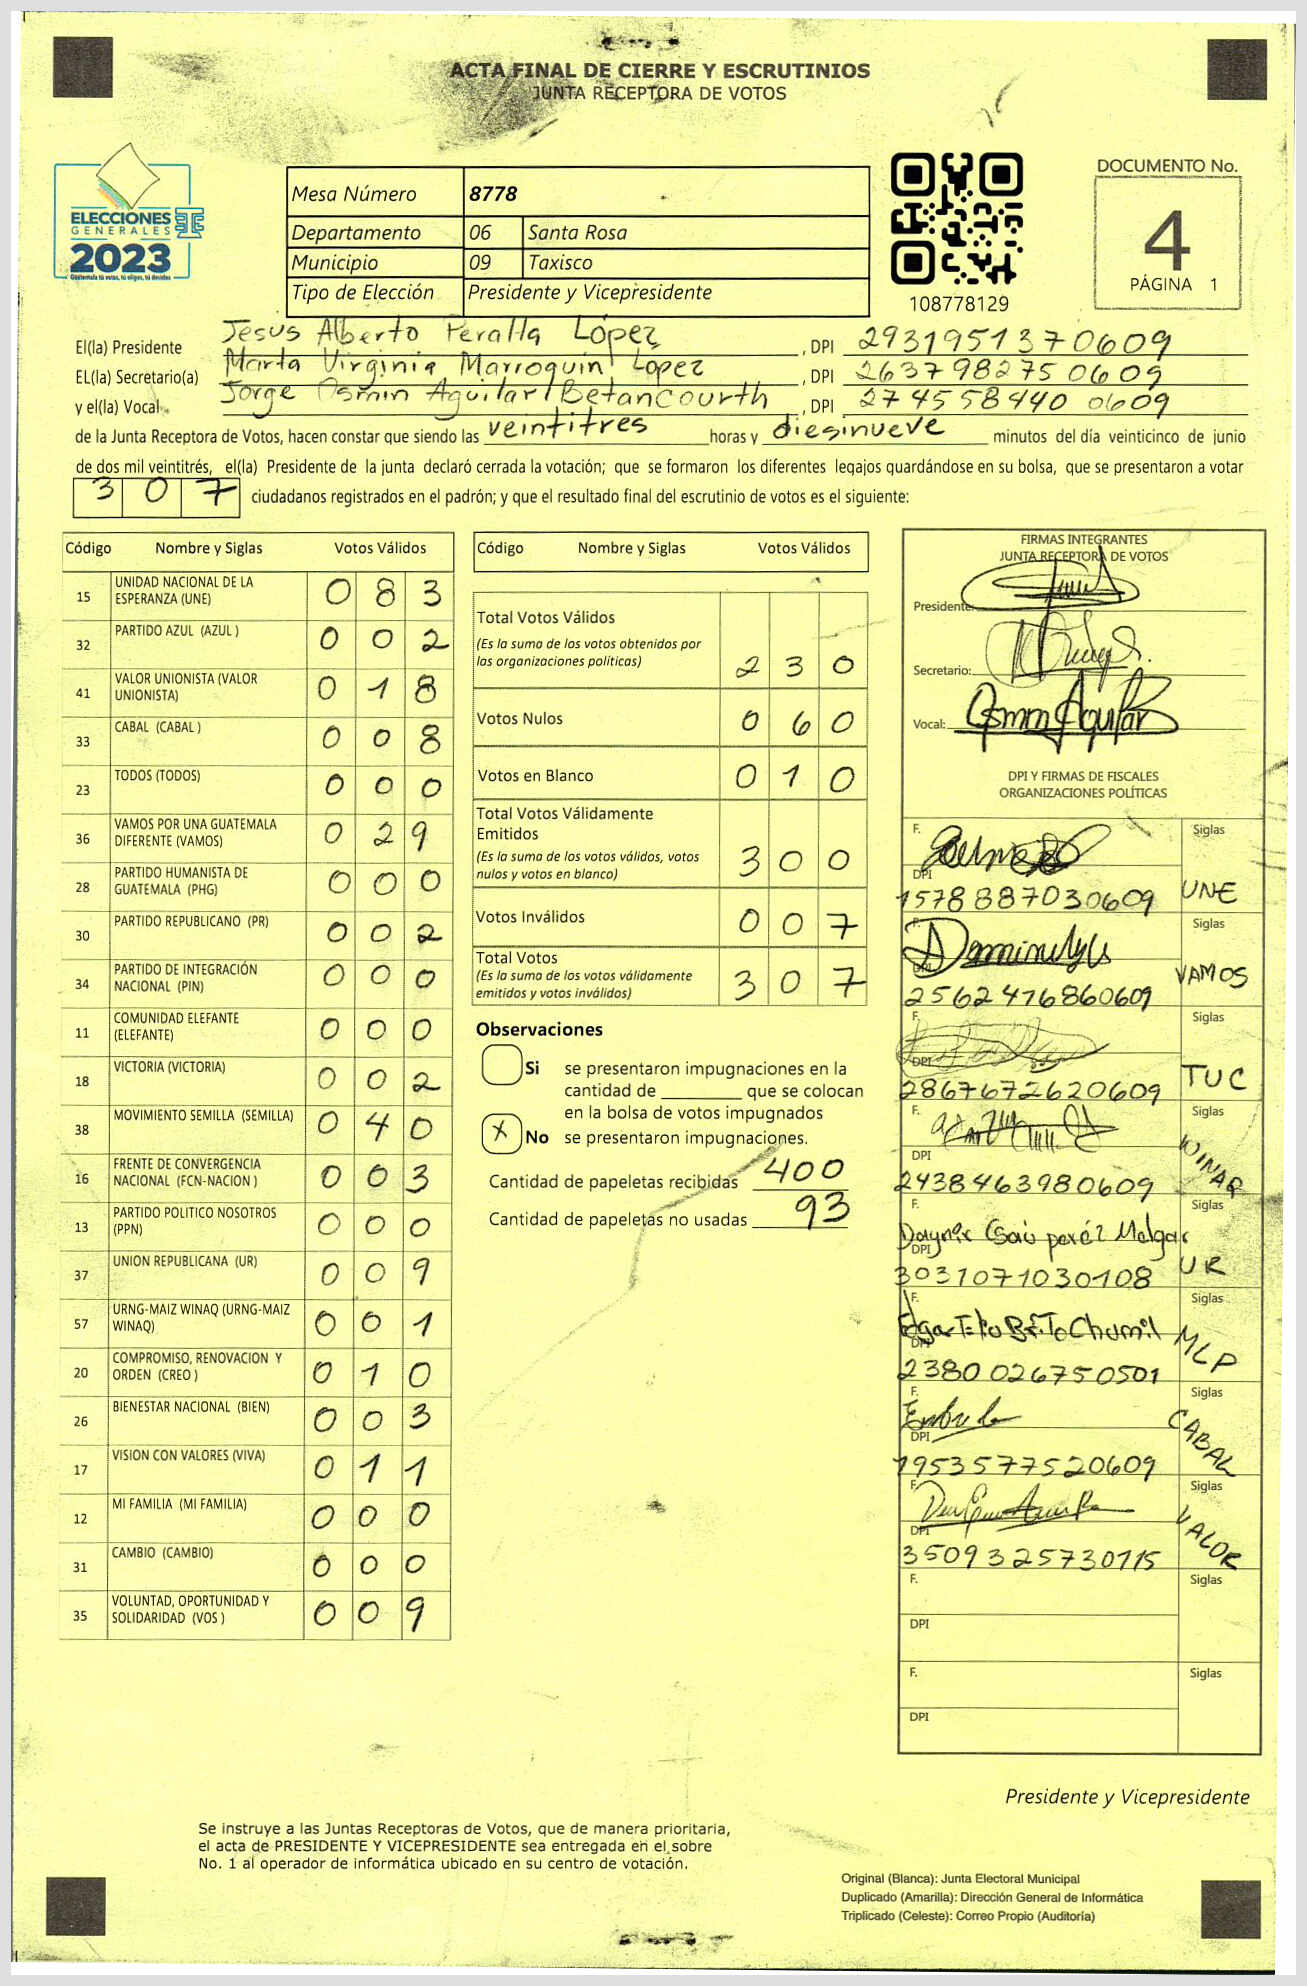 ACTA FINAL DE CIERRE Y ESCRUTINIOS
JUNTA RECEPTORA DE VOTOS
ELECCIONES
GENERALES
2023
Guatemala tú votas, tú eliges, tú decides
Mesa Número 8778
Departamento 06 Santa Rosa
Municipio 09 Taxisco
Tipo de Elección Presidente y Vicepresidente
108778129
DOCUMENTO No.
4
PÁGINA 1
El(la) Presidente Jesus Alberto Peralta López , DPI 2931951370609
EL(la) Secretario(a) Marta Virginia Marroquin Lopez , DPI 2637982750609
y el(la) Vocal. Jorge Osmin Aguilar Betancourth , DPI 2745584400609
de la Junta Receptora de Votos, hacen constar que siendo las veintitres horas y diesinueve minutos del día veinticinco de junio
de dos mil veintitrés, el(la) Presidente de la junta declaró cerrada la votación; que se formaron los diferentes legajos guardándose en su bolsa, que se presentaron a votar
307 ciudadanos registrados en el padrón; y que el resultado final del escrutinio de votos es el siguiente:
Código Nombre y Siglas Votos Válidos
15 UNIDAD NACIONAL DE LA ESPERANZA (UNE) 083
32 PARTIDO AZUL (AZUL ) 002
41 VALOR UNIONISTA (VALOR UNIONISTA) 018
33 CABAL (CABAL ) 008
23 TODOS (TODOS) 000
36 VAMOS POR UNA GUATEMALA DIFERENTE (VAMOS) 029
28 PARTIDO HUMANISTA DE GUATEMALA (PHG) 000
30 PARTIDO REPUBLICANO (PR) 002
34 PARTIDO DE INTEGRACIÓN NACIONAL (PIN) 000
11 COMUNIDAD ELEFANTE (ELEFANTE) 000
18 VICTORIA (VICTORIA) 002
38 MOVIMIENTO SEMILLA (SEMILLA) 040
16 FRENTE DE CONVERGENCIA NACIONAL (FCN-NACION ) 003
13 PARTIDO POLITICO NOSOTROS (PPN) 000
37 UNION REPUBLICANA (UR) 009
57 URNG-MAIZ WINAQ (URNG-MAIZ WINAQ) 001
20 COMPROMISO, RENOVACION Y ORDEN (CREO ) 010
26 BIENESTAR NACIONAL (BIEN) 003
17 VISION CON VALORES (VIVA) 011
12 MI FAMILIA (MI FAMILIA) 000
31 CAMBIO (CAMBIO) 000
35 VOLUNTAD, OPORTUNIDAD Y SOLIDARIDAD (VOS ) 009
Código Nombre y Siglas Votos Válidos
Total Votos Válidos
(Es la suma de los votos obtenidos por
las organizaciones políticas) 230
Votos Nulos 060
Votos en Blanco 010
Total Votos Válidamente
Emitidos
(Es la suma de los votos válidos, votos
nulos y votos en blanco) 300
Votos Inválidos 007
Total Votos
(Es la suma de los votos válidamente
emitidos y votos inválidos) 307
Observaciones
Si se presentaron impugnaciones en la
cantidad de ________ que se colocan
en la bolsa de votos impugnados
X No se presentaron impugnaciones.
Cantidad de papeletas recibidas 400
Cantidad de papeletas no usadas 93
FIRMAS INTEGRANTES
JUNTA RECEPTORA DE VOTOS
Presidente:
Secretario:
Vocal: Osmin Aguilar B
DPI Y FIRMAS DE FISCALES
ORGANIZACIONES POLÍTICAS
F. Siglas
DPI 1578887030609 UNE
F. Siglas
DPI 2562476860609 VAMOS
F. Siglas
DPI 2867672620609 TUC
F. Siglas
DPI 2438463980609 WINAQ
F. Siglas
DPI 3031071030108 UR
F. Siglas
DPI 2380026750501 MLP
F. Siglas
DPI 1953577520609 CABAL
F. Siglas
DPI 3509325730115 VALOR
F. Siglas
DPI
F. Siglas
DPI
Presidente y Vicepresidente
Se instruye a las Juntas Receptoras de Votos, que de manera prioritaria,
el acta de PRESIDENTE Y VICEPRESIDENTE sea entregada en el sobre
No. 1 al operador de informática ubicado en su centro de votación.
Original (Blanca): Junta Electoral Municipal
Duplicado (Amarilla): Dirección General de Informática
Triplicado (Celeste): Correo Propio (Auditoría)